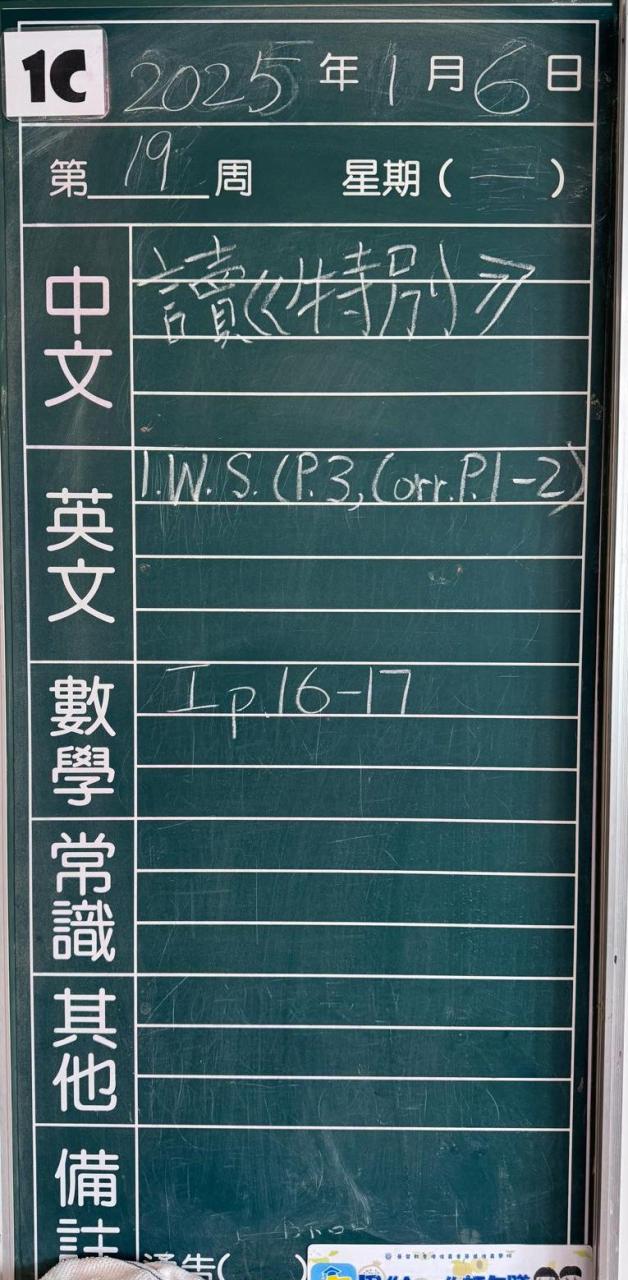 1C 2025年1月6日
第19周 星期(一)
中文 讀《特別》
英文 I.W.S. (P.3, Corr.P.1-2)
數學 I p.16-17
常識
其他
備註
通告( )